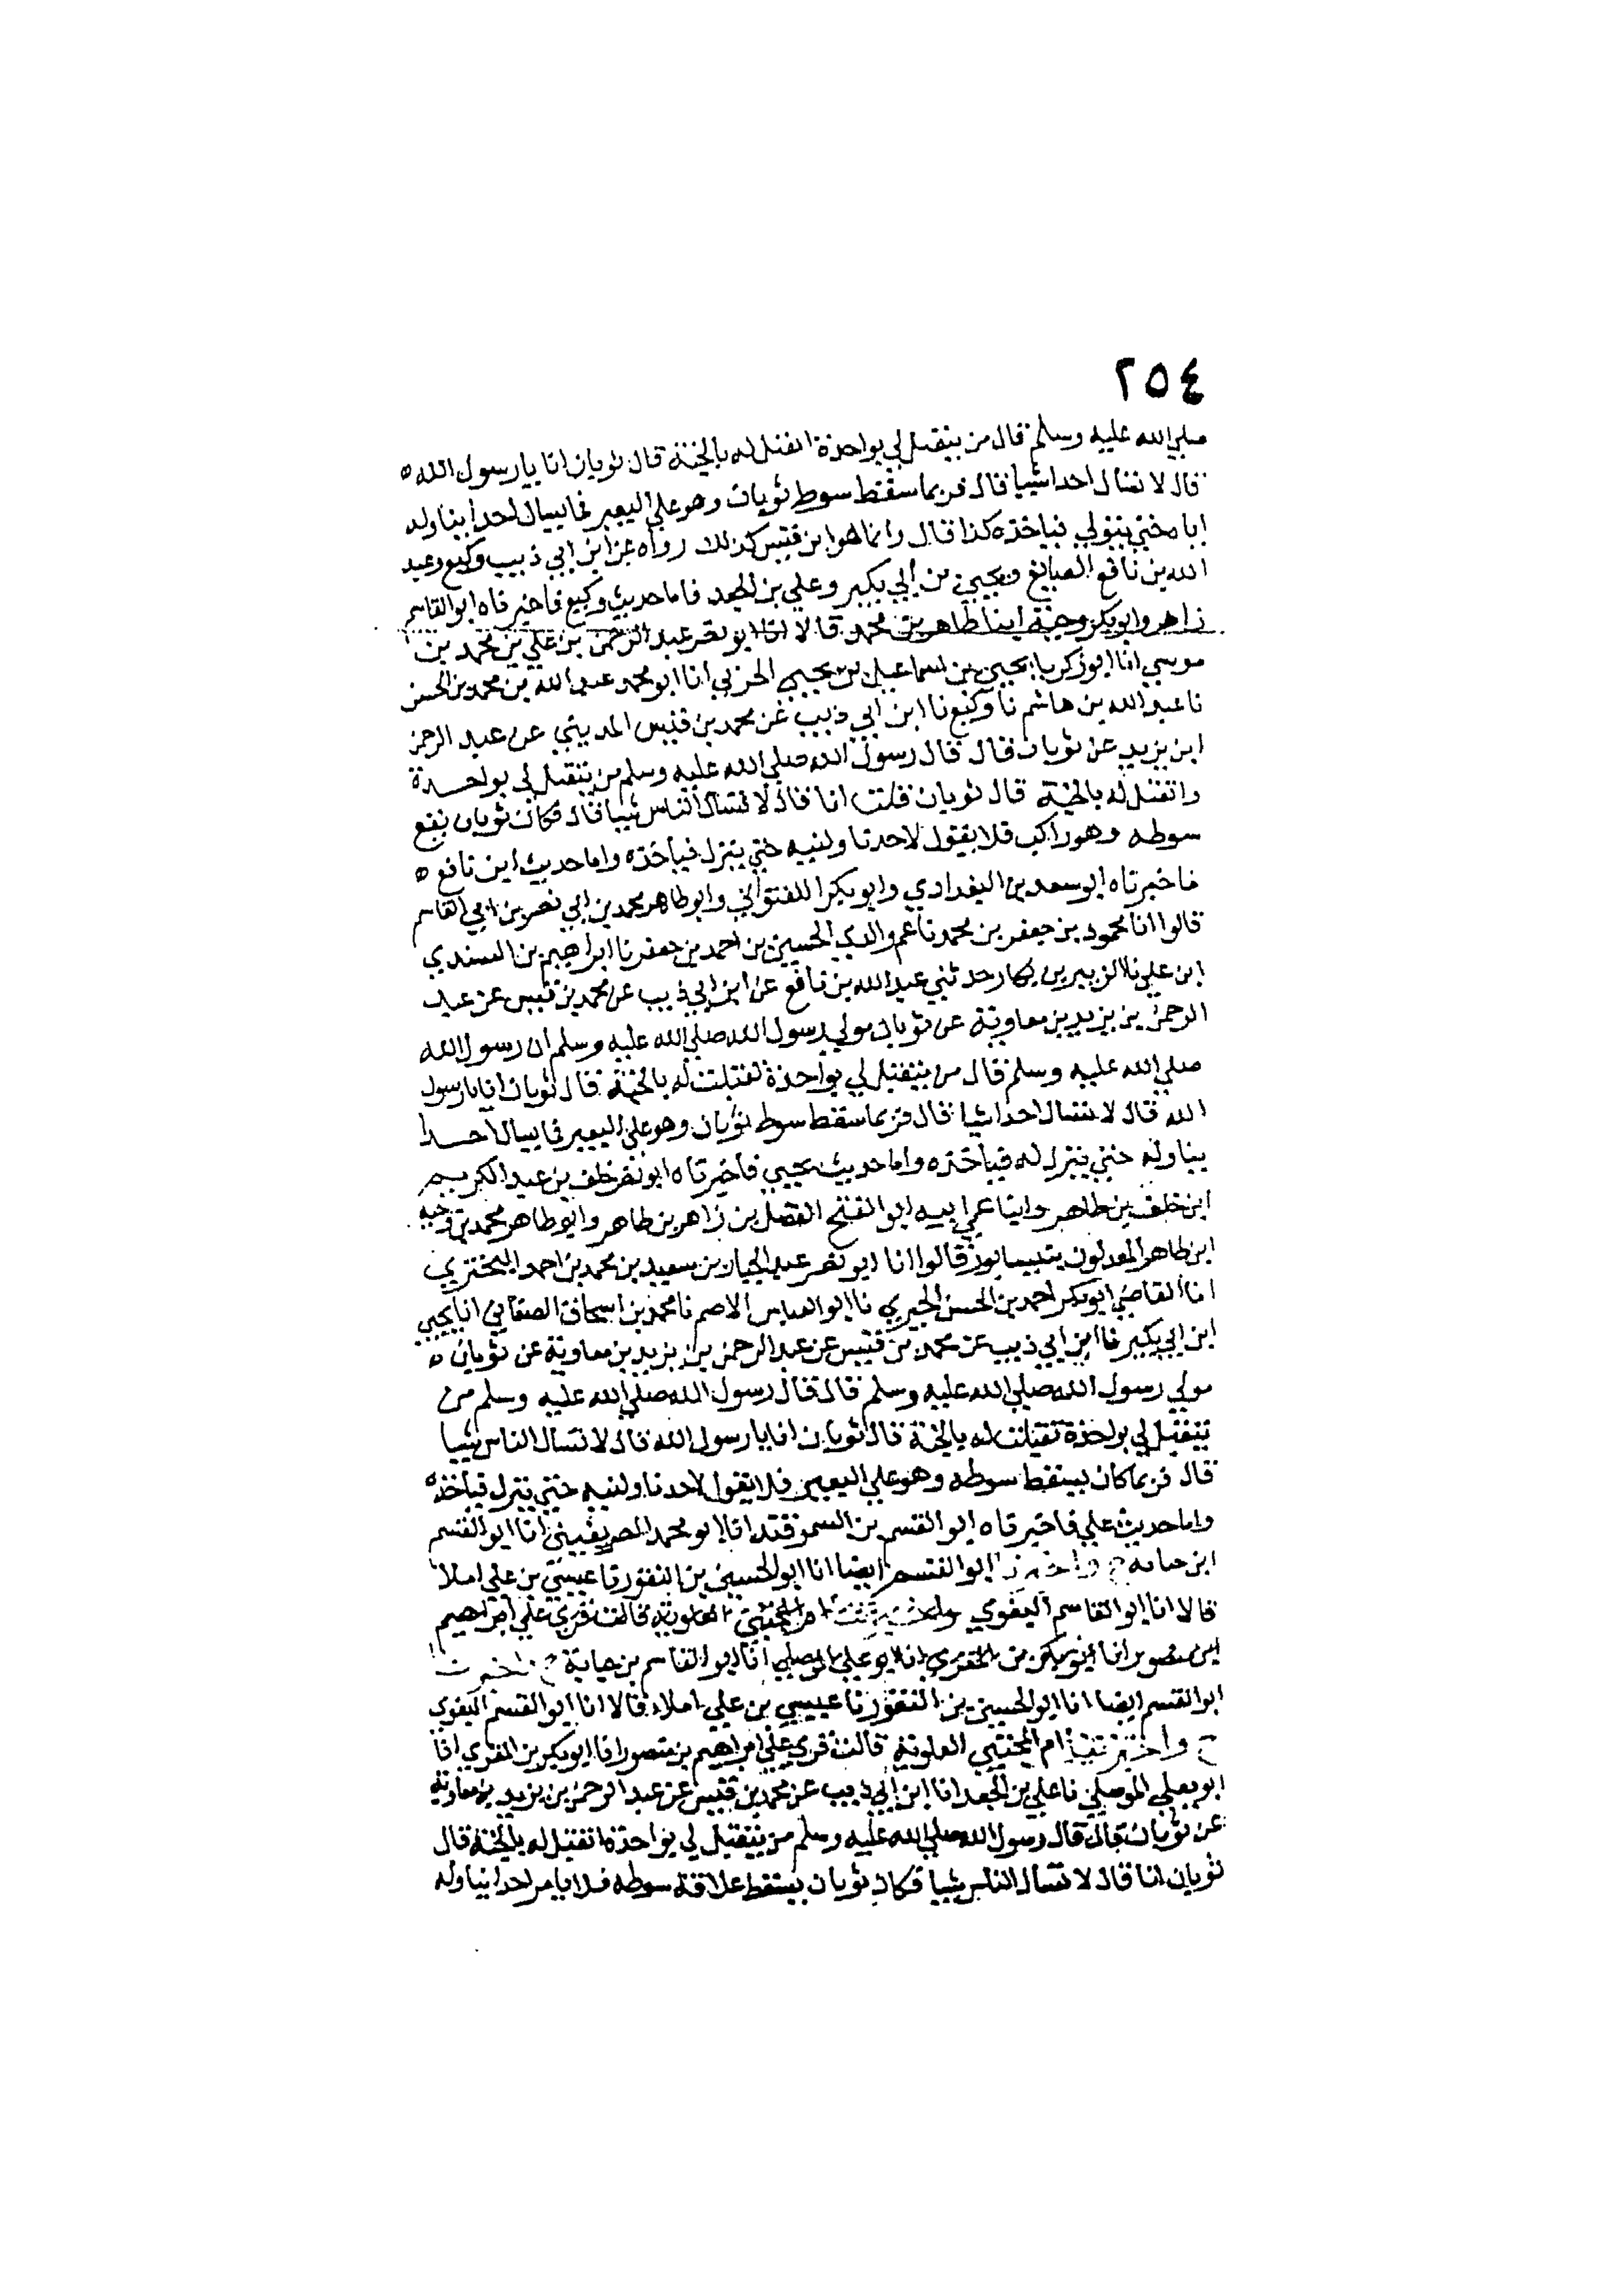 ٢٥٤
صلي الله عليه وسلم قال من يتقبل لي بواحدة اتقبل له بالجنة قال ثوبان انا يا رسول الله ه
قال لا تسال احدا شيا قال فربما سقط سوط ثوبان وهو علي البعير فما يسال احدا يناوله
اياه حتي ينزل فياخذه كذا قال وانما هو ابن قيس كذلك رواه عن ابن ابي ذيب وكيع وعبد
الله بن نافع الصايغ ويحيي بن ابي بكير وعلي بن الجعد فاما حديث وكيع فاخبرناه ابو القاسم
زاهر وابو بكر وجيه ابنا طاهر بن محمد قالا انا ابو نصر عبد الرحمن بن علي بن محمد بن
موسي انا ابو زكريا يحيي بن اسماعيل بن يحيي الحربي انا ابو محمد عبد الله بن محمد بن الحسن
نا عبد الله بن هاشم نا وكيع نا ابن ابي ذيب عن محمد بن قيس المديني عن عبد الرحمن
ابن يزيد عن ثوبان قال قال رسول الله صلي الله عليه وسلم من يتقبل لي بواحدة
واتقبل له بالجنة قال ثوبان قلت انا قال لا تسال الناس شيا قال فكان ثوبان يقع
سوطه وهو راكب فلا يقول لاحد ناولنيه حتي ينزل فياخذه واما حديث ابن نافع ه
فاخبرناه ابو سعد بن البغدادي وابو بكر اللفتواني وابو طاهر محمد بن ابي نصر بن ابي القاسم
قالوا انا محمود بن جعفر بن محمد نا عم والدي الحسين بن احمد بن جعفر نا ابراهيم بن السندي
ابن علي نا الزبير بن بكار حدثني عبد الله بن نافع عن ابن ابي ذيب عن محمد بن قيس عن عبد
الرحمن بن يزيد بن معاوية عن ثوبان مولي رسول الله صلي الله عليه وسلم ان رسول الله
صلي الله عليه وسلم قال من يتقبل لي بواحدة تقبلت له بالجنة قال ثوبان انا يا رسول
الله قال لا تسال احدا شيا قال فربما سقط سوط ثوبان وهو علي البعير فما يسال احدا
يناوله حتي ينزل له فياخذه واما حديث يحيي فاخبرناه ابو نصر خلف بن عبد الكريم
ابن خلف بن طاهر وابنا عم ابيه ابو الفتح الفضل بن زاهر بن طاهر وابو طاهر محمد بن وجيه
ابن طاهر المعدلون بنيسابور قالوا انا ابو نصر عبد الجبار بن سعيد بن محمد بن احمد البختري
انا القاضي ابو بكر احمد بن الحسن الحيري نا ابو العباس الاصم نا محمد بن اسحاق الصغاني انا يحيي
ابن ابي بكير نا ابن ابي ذيب عن محمد بن قيس عن عبد الرحمن بن يزيد بن معاوية عن ثوبان ه
مولي رسول الله صلي الله عليه وسلم قال قال رسول الله صلي الله عليه وسلم من
يتقبل لي بواحدة تقبلت له بالجنة قال ثوبان انا يا رسول الله قال لا تسال الناس شيا
قال فربما كان يسقط سوطه وهو علي البعير فلا يقول لاحد ناولنيه حتي ينزل فياخذه
واما حديث علي فاخبرناه ابو القسم بن السمرقندي انا ابو محمد الصريفيني انا ابو القسم
ابن حبابه ح واخبرنا ابو القسم ايضا انا ابو الحسين بن النقور نا عيسي بن علي املا
قالا انا ابو القاسم البغوي واخبرتنا ام المجتبي العلوية قالت قري علي ابراهيم
ابن منصور انا ابو بكر بن المقري انا ابو يعلي الموصلي انا ابو القاسم بن حبابة ح واخبرنا
ابو القسم ايضا انا ابو الحسين بن النقور نا عيسي بن علي املاء قالا انا ابو القسم البغوي
ح واخبرتنا ام المجتبي العلوية قالت قري علي ابراهيم بن منصور انا ابو بكر بن المقري انا
ابو يعلي الموصلي نا علي بن الجعد انا ابن ابي ذيب عن محمد بن قيس عن عبد الرحمن بن يزيد بن معاوية
عن ثوبان قال قال رسول الله صلي الله عليه وسلم من يتقبل لي بواحدة اتقبل له بالجنة قال
ثوبان انا قال لا تسال الناس شيا فكان ثوبان يسقط علاقة سوطه فلا يامر احدا يناوله